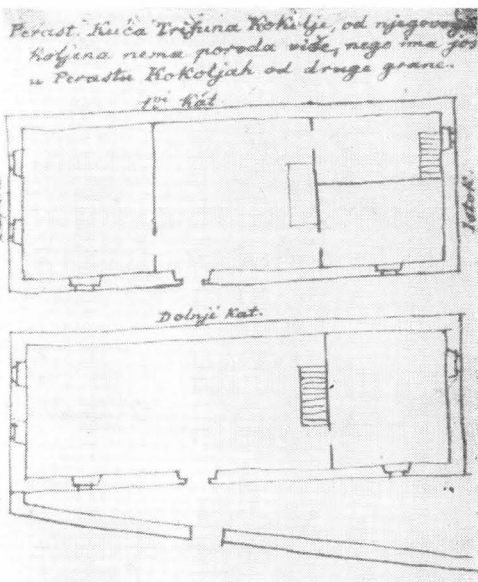 Perast. Kuća Trifuna Kokolje, od njegovog
koljena nema poroda više, nego ima još
u Perastu Kokoljah od druge grane.
1vi kat
Istok.
Dolnji kat.